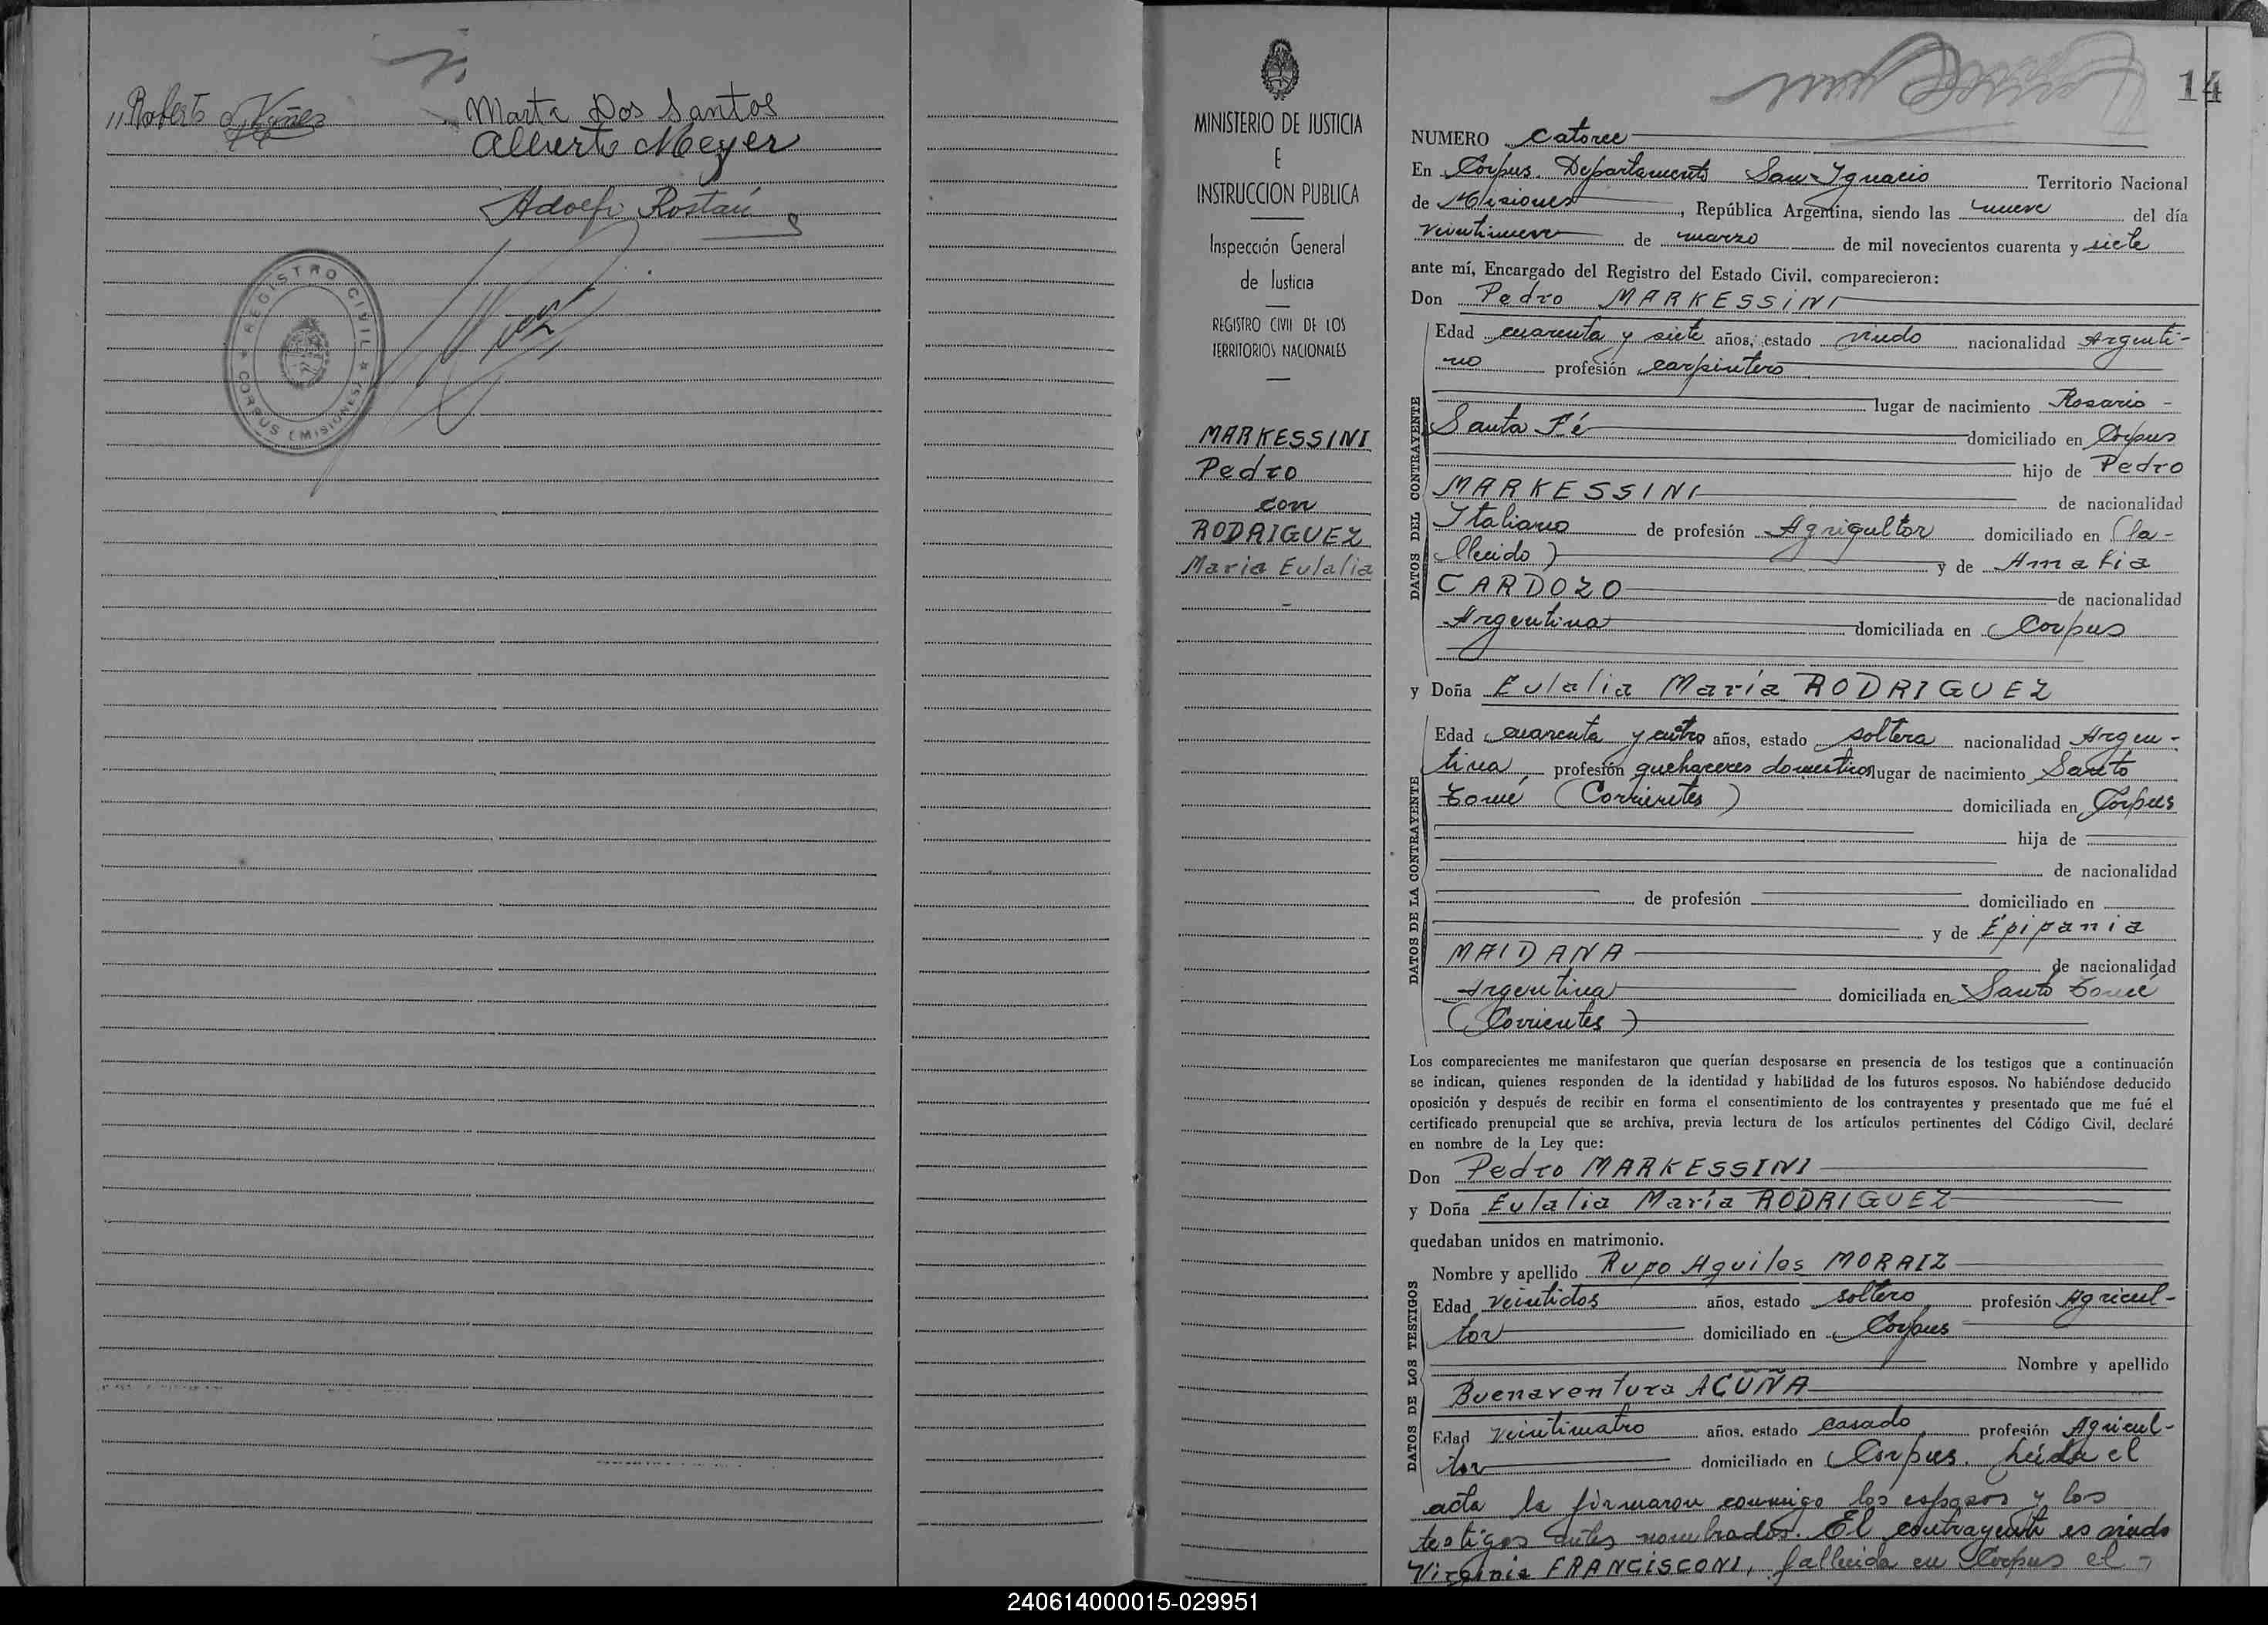 Roberto
Marta Dos Santos
Alberto Meyer
Adolfo Rostán
REGISTRO CIVIL
CORPUS (MISIONES)
MINISTERIO DE JUSTICIA
E
INSTRUCCION PUBLICA
Inspección General
de Justicia
REGISTRO CIVIL DE LOS
TERRITORIOS NACIONALES
MARKESSINI
Pedro
con
RODRIGUEZ
Maria Eulalia
14
NUMERO Catorce
En Corpus. Departamento San Ignacio Territorio Nacional
de Misiones, República Argentina, siendo las nueve del día
veintinueve de marzo de mil novecientos cuarenta y siete
ante mí, Encargado del Registro del Estado Civil, comparecieron:
Don Pedro MARKESSINI
DATOS DEL CONTRAYENTE
Edad cuarenta y siete años, estado viudo nacionalidad Argenti-
no profesión carpintero
lugar de nacimiento Rosario -
Santa Fé domiciliado en Corpus
hijo de Pedro
MARKESSINI de nacionalidad
Italiano de profesión Agrigultor domiciliado en (fa-
llecido) y de Amalia
CARDOZO de nacionalidad
Argentina domiciliada en Corpus
y Doña Eulalia María RODRIGUEZ
DATOS DE LA CONTRAYENTE
Edad cuarenta y cuatro años, estado soltera nacionalidad Argen-
tina profesión quehaceres domesticos lugar de nacimiento Santo
Tomé (Corrientes) domiciliada en Corpus
hija de
de nacionalidad
de profesión domiciliado en
y de Epipania
MAIDANA de nacionalidad
Argentina domiciliada en Santo Tomé
(Corrientes)
Los comparecientes me manifestaron que querían desposarse en presencia de los testigos que a continuación
se indican, quienes responden de la identidad y habilidad de los futuros esposos. No habiéndose deducido
oposición y después de recibir en forma el consentimiento de los contrayentes y presentado que me fué el
certificado prenupcial que se archiva, previa lectura de los artículos pertinentes del Código Civil, declaré
en nombre de la Ley que:
Don Pedro MARKESSINI
y Doña Eulalia María RODRIGUEZ
quedaban unidos en matrimonio.
DATOS DE LOS TESTIGOS
Nombre y apellido Rupo Aquiles MORAIZ
Edad veintidos años, estado soltero profesión Agricul-
tor domiciliado en Corpus
Nombre y apellido
Buenaventura ACUÑA
Edad veinticuatro años, estado casado profesión Agricul-
tor domiciliado en Corpus. Leída el
acta la firmaron conmigo los esposos y los
testigos antes nombrados. El contrayente es viudo
Virginia FRANCISCONI, fallecida en Corpus el -
240614000015-029951